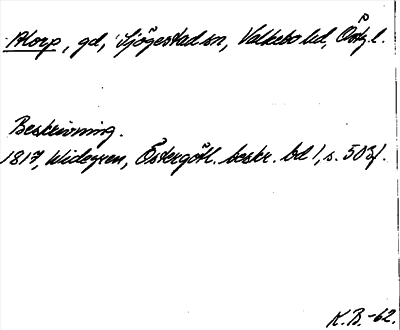 Atorp, gd, Sjögestad sn, Valkebo hd, Östg. l.
Beskrivning.
1817, Widegren, Östergötl. beskr. bd 1, s. 503f.
K.B. -62.